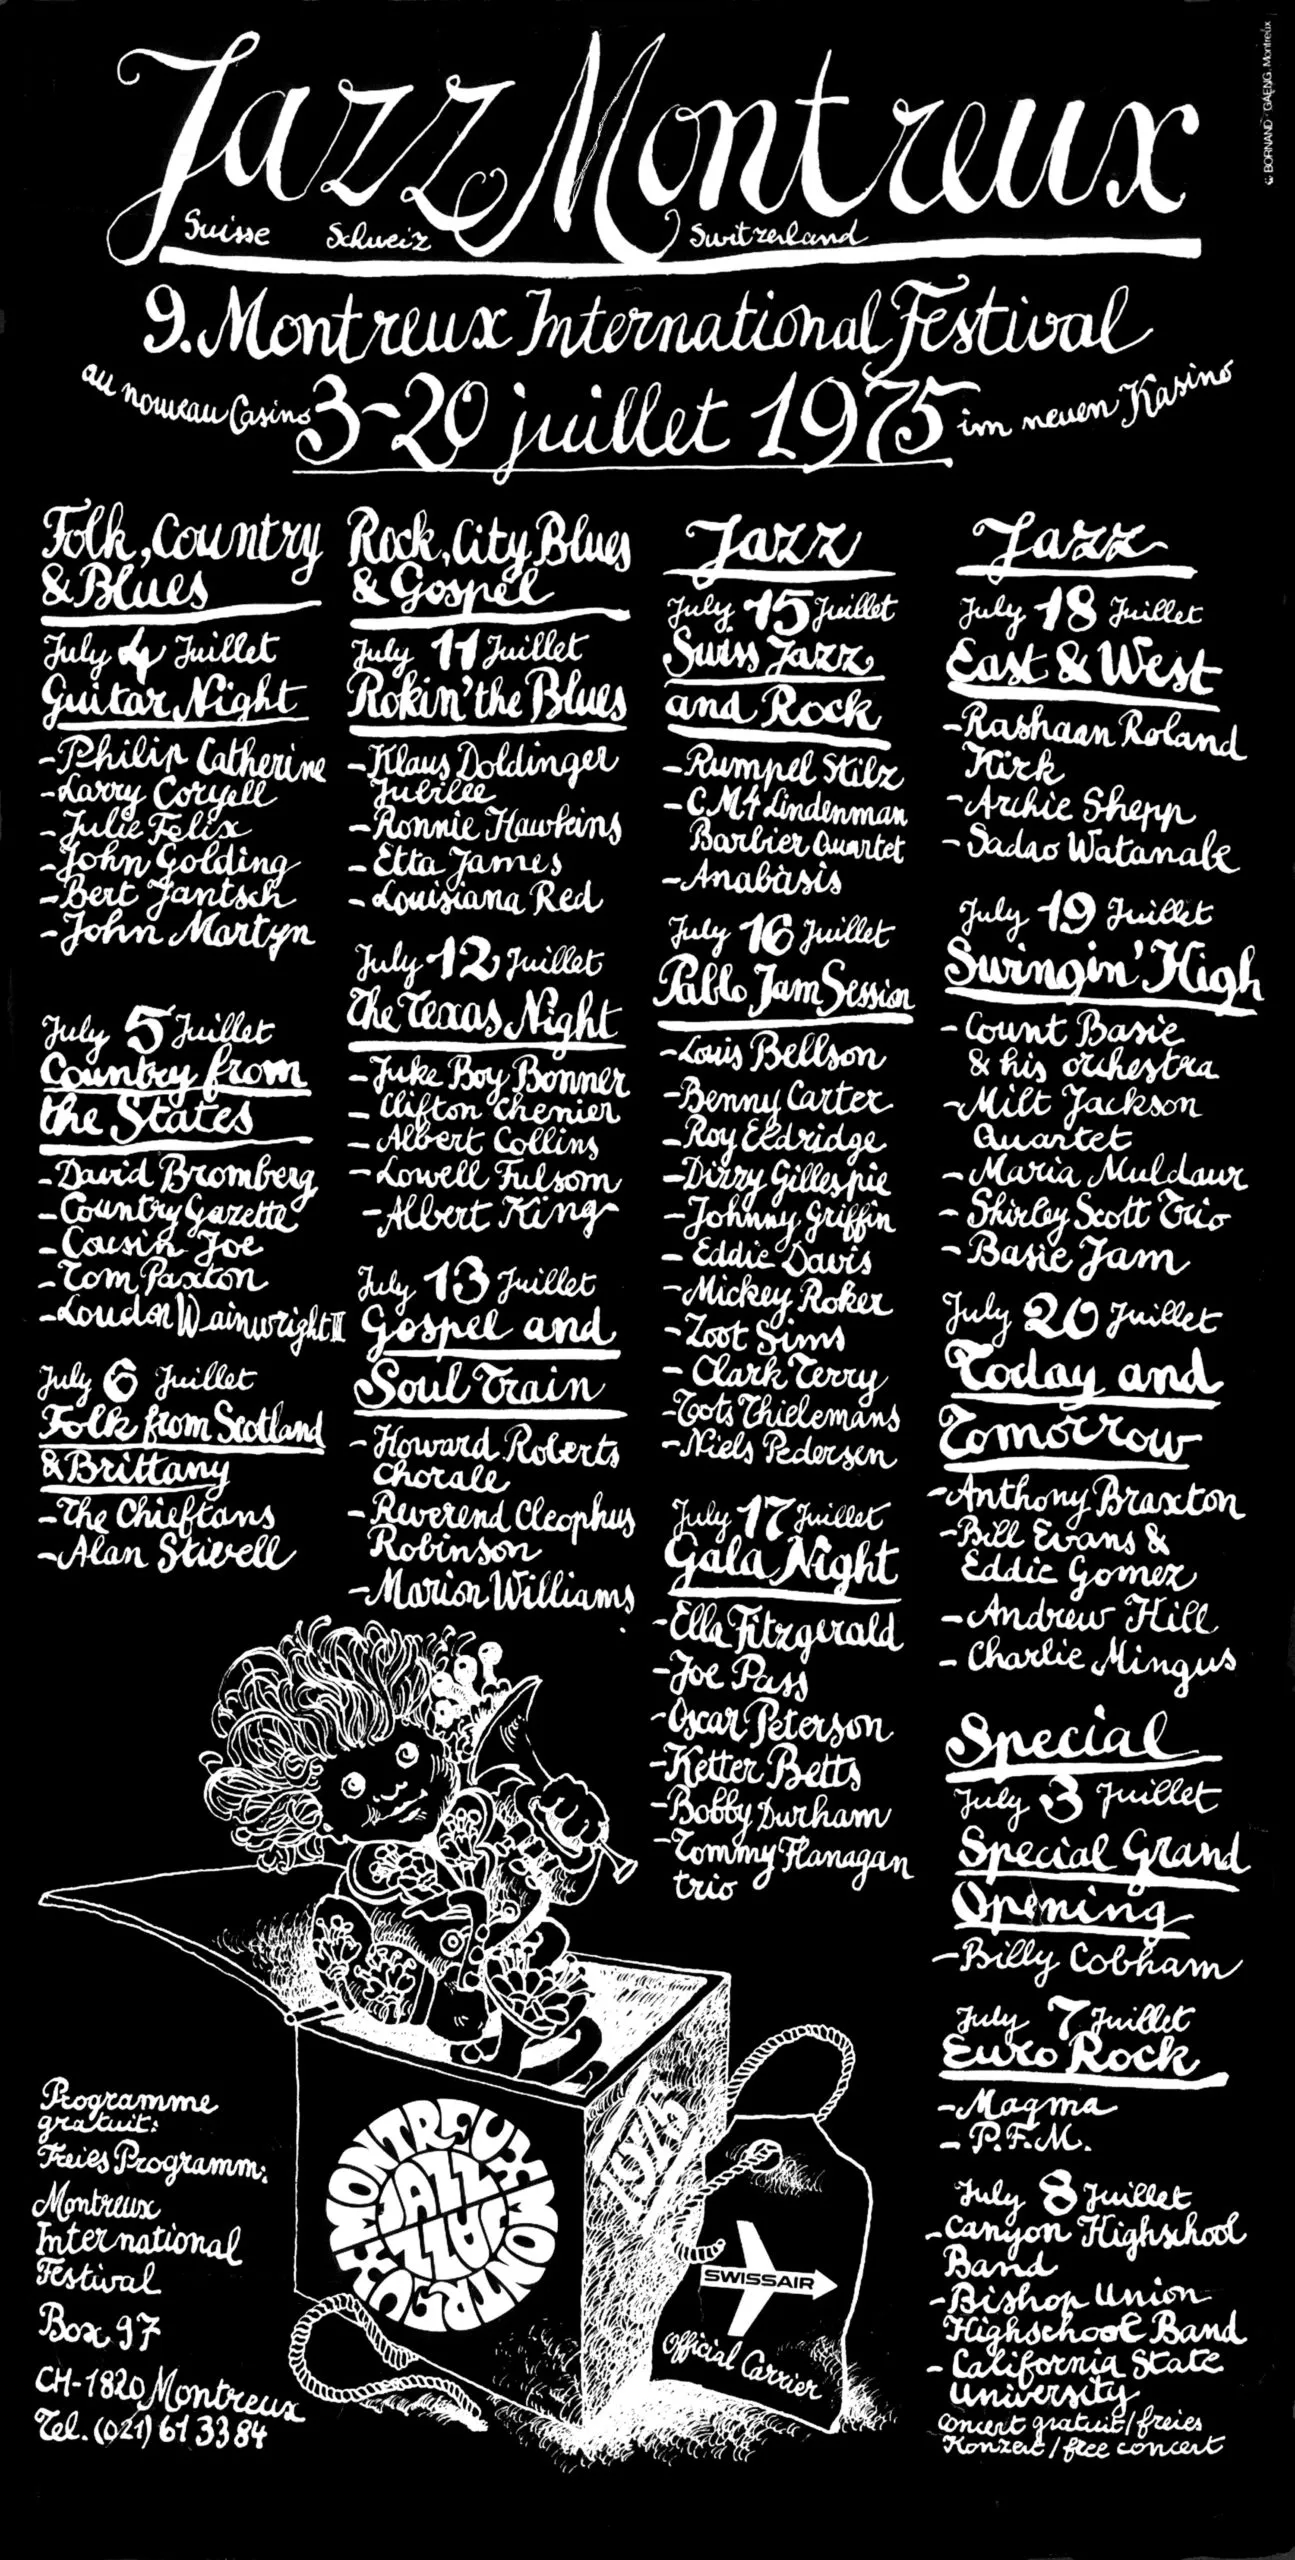 Jazz Montreux
Suisse Schweiz Switzerland
9. Montreux International Festival
au nouveau Casino 3-20 juillet 1975 im neuen Kasino
Folk, Country
& Blues
July 4 Juillet
Guitar Night
-Philip Catherine
-Larry Coryell
-Julie Felix
-John Golding
-Bert Jantsch
-John Martyn
July 5 Juillet
Country from
the States
-David Bromberg
-Country Gazette
-Cousin Joe
-Tom Paxton
-Loudon Wainwright III
July 6 Juillet
Folk from Scotland
& Brittany
-The Chieftans
-Alan Stivell
Rock, City Blues
& Gospel
July 11 Juillet
Rokin' the Blues
-Klaus Doldinger
Jubilee
-Ronnie Hawkins
-Etta James
-Louisiana Red
July 12 Juillet
The Texas Night
-Juke Boy Bonner
-Clifton Chenier
-Albert Collins
-Lowell Fulsom
-Albert King
July 13 Juillet
Gospel and
Soul Train
-Howard Roberts
Chorale
-Reverend Cleophus
Robinson
-Marion Williams
Jazz
July 15 Juillet
Swiss Jazz
and Rock
-Rumpel Stilz
-C.M4 Lindenman
Barbier Quartet
-Anabàsis
July 16 Juillet
Pablo Jam Session
-Louis Bellson
-Benny Carter
-Roy Eldridge
-Dizzy Gillespie
-Johnny Griffin
-Eddie Davis
-Mickey Roker
-Zoot Sims
-Clark Terry
-Tots Thielemans
-Niels Pedersen
July 17 Juillet
Gala Night
-Ella Fitzgerald
-Joe Pass
-Oscar Peterson
-Ketter Betts
-Bobby Durham
-Tommy Flanagan
trio
Jazz
July 18 Juillet
East & West
-Rashaan Roland
Kirk
-Archie Shepp
-Sadao Watanabe
July 19 Juillet
Swingin' High
-Count Basie
& his orchestra
-Milt Jackson
Quartet
-Maria Muldaur
-Shirley Scott Trio
-Basie Jam
July 20 Juillet
Today and
Tomorrow
-Anthony Braxton
-Bill Evans &
Eddie Gomez
-Andrew Hill
-Charlie Mingus
Special
July 3 Juillet
Special Grand
Opening
-Billy Cobham
July 7 Juillet
Euro Rock
-Magma
-P.F.M.
July 8 Juillet
-Canyon Highschool
Band
-Bishop Union
Highschool Band
-California State
University
concert gratuit/freies
Konzert/free concert
Programme
gratuit:
Freies Programm:
Montreux
International
Festival
Box 97
CH-1820 Montreux
Tel. (021) 61 33 84
MONTREUX MONTREUX
JAZZ
JAZZ
1975
SWISSAIR
Official Carrier
© BORNAND - GAENG, Montreux